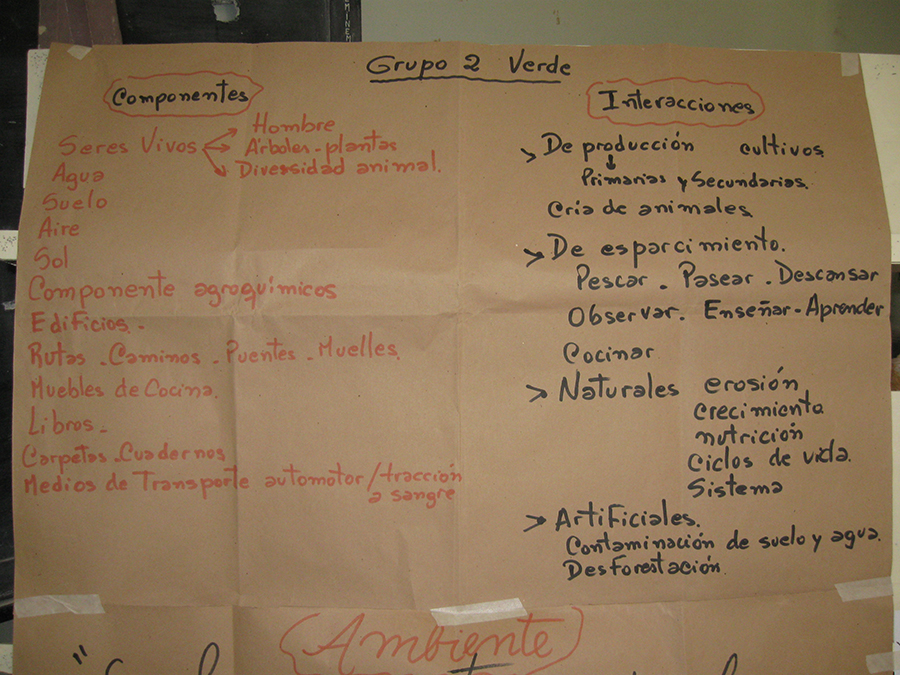 Grupo 2 Verde
Componentes
Seres Vivos
Hombre
Arboles - plantas
Diversidad animal.
Agua
Suelo
Aire
Sol
Componente agroquímicos
Edificios.-
Rutas - Caminos - Puentes - Muelles.
Muebles de Cocina.
Libros.-
Carpetas - Cuadernos
Medios de Transporte automotor / tracción
a sangre
Interacciones
> De producción cultivos
Primarias y Secundarias.
Cría de animales
> De esparcimiento.
Pescar - Pasear - Descansar
Observar. Enseñar - Aprender
Cocinar
> Naturales erosión
crecimiento
nutrición
ciclos de vida.
Sistema
> Artificiales.
Contaminación de suelo y agua.
Desforestación.
Ambiente